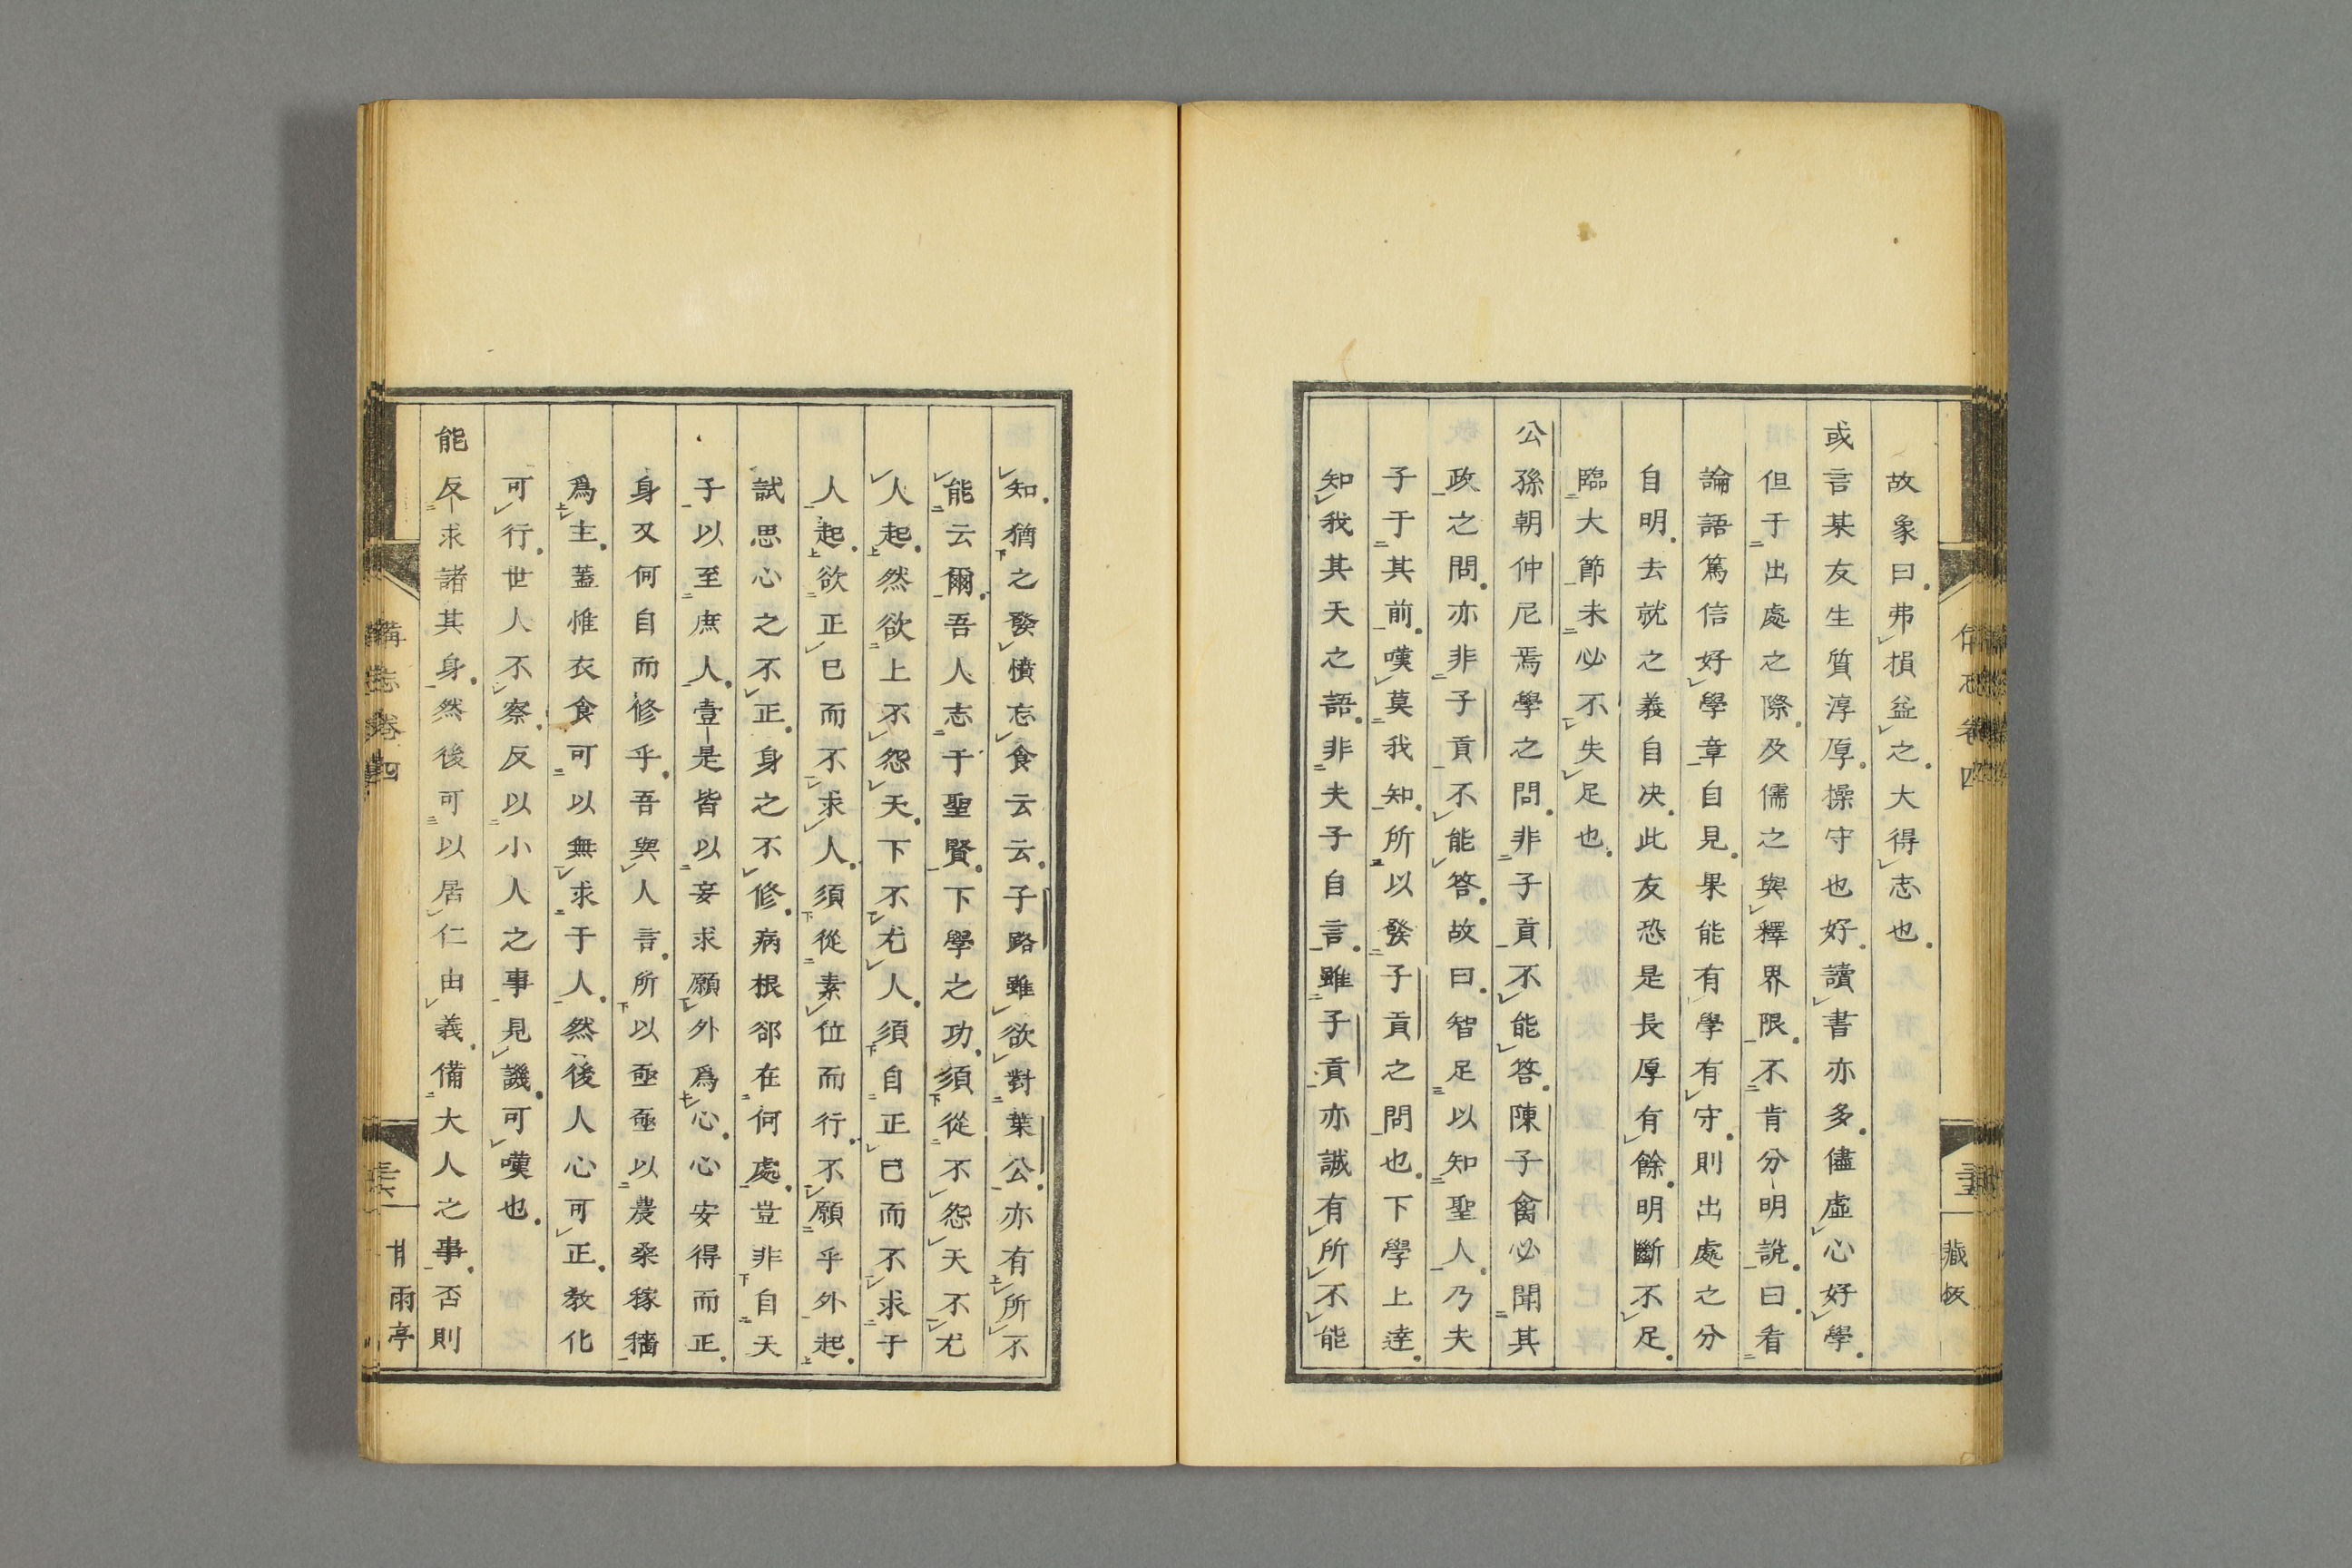 故象曰弗損益之大得志也
或言某友生質淳厚操守也好讀書亦多儘虛心好學
但于出處之際及儒之與釋界限不肯分明說曰看
論語篤信好學章自見果能有學有守則出處之分
自明去就之義自决此友恐是長厚有餘明斷不足
臨大節未必不失足也
公孫朝仲尼焉學之問非子貢不能答陳子禽必聞其
政之問亦非子貢不能答故曰智足以知聖人乃夫
子于其前嘆莫我知所以發子貢之問也下學上達
知我其天之語非夫子自言雖子貢亦誠有所不能
知猶之發憤忘食云云子路雖欲對葉公亦有所不
能云爾吾人志于聖賢下學之功須從不怨天不尤
人起然欲上不怨天下不尤人須自正己而不求于
人起欲正己而不求人須從素位而行不願乎外起
試思心之不正身之不修病根郤在何處豈非自天
子以至庶人壹是皆以妄求願外爲心心安得而正
身又何自而修乎吾與人言所以亟亟以農桑稼穡
爲主蓋惟衣食可以無求于人然後人心可正教化
可行世人不察反以小人之事見譏可嘆也
能反求諸其身然後可以居仁由義備大人之事否則
卷四
甘雨亭
藏板